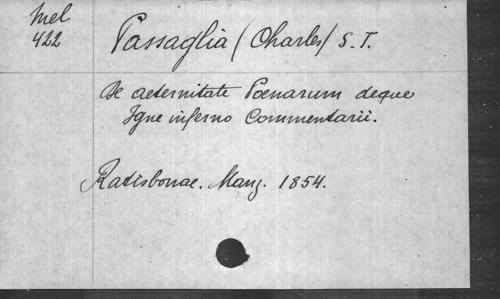 Mel
422
Passaglia (Charles) S. J.
De aeternitate Poenarum deque
Igne inferno Commentarii.
Ratisbonae. Manz. 1854.